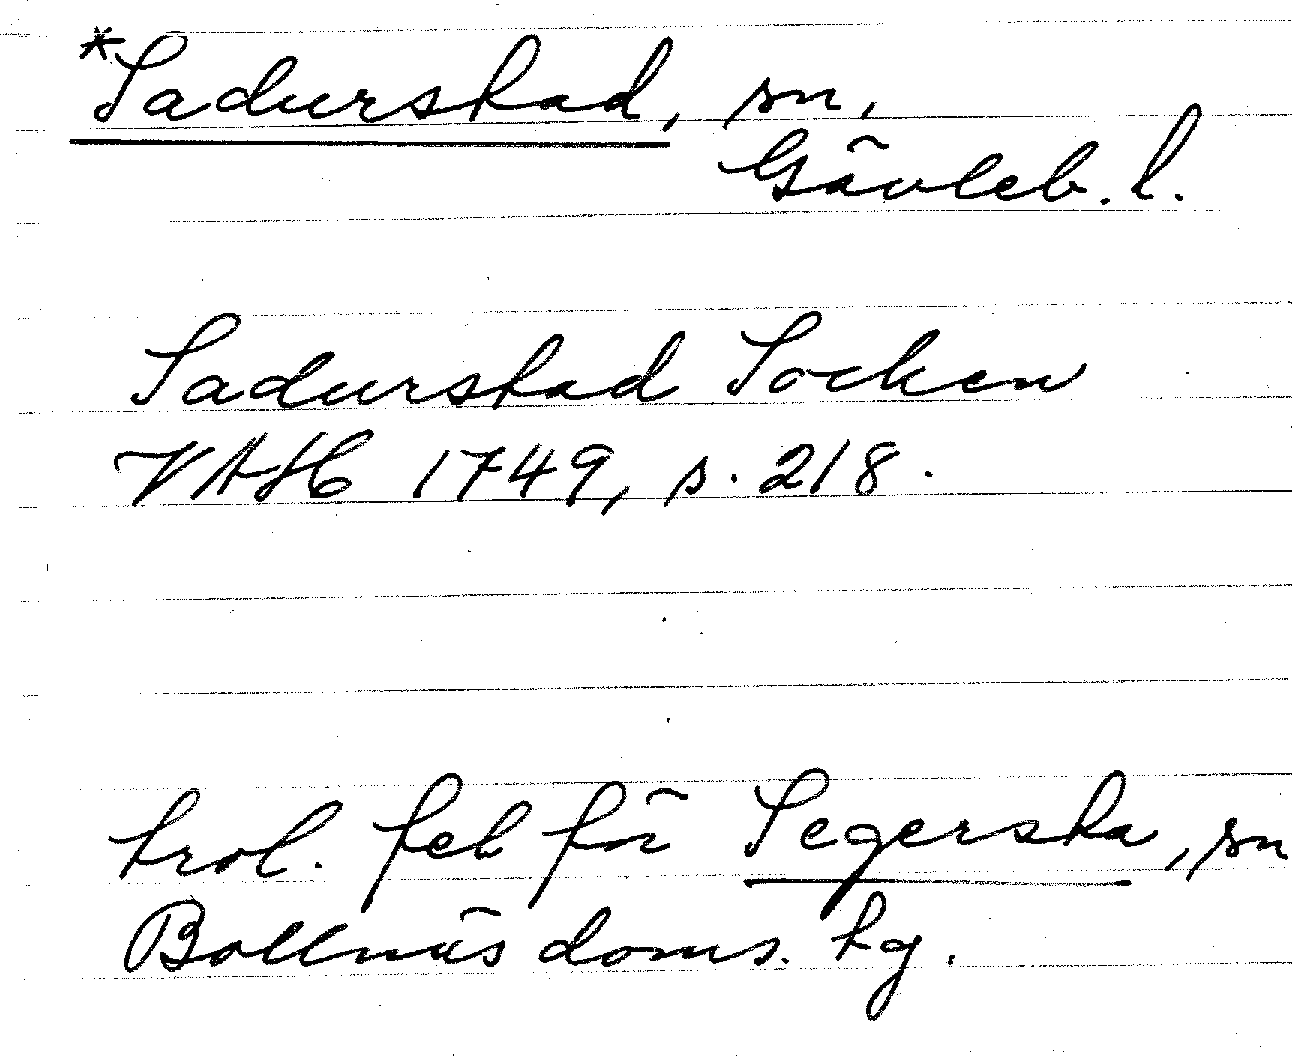 *Sadurstad, sn,
Gävleb. l.
Sadurstad Socken
VAH 1749, s. 218.
trol. fel för Segersta, sn
Bollnäs doms. tg.